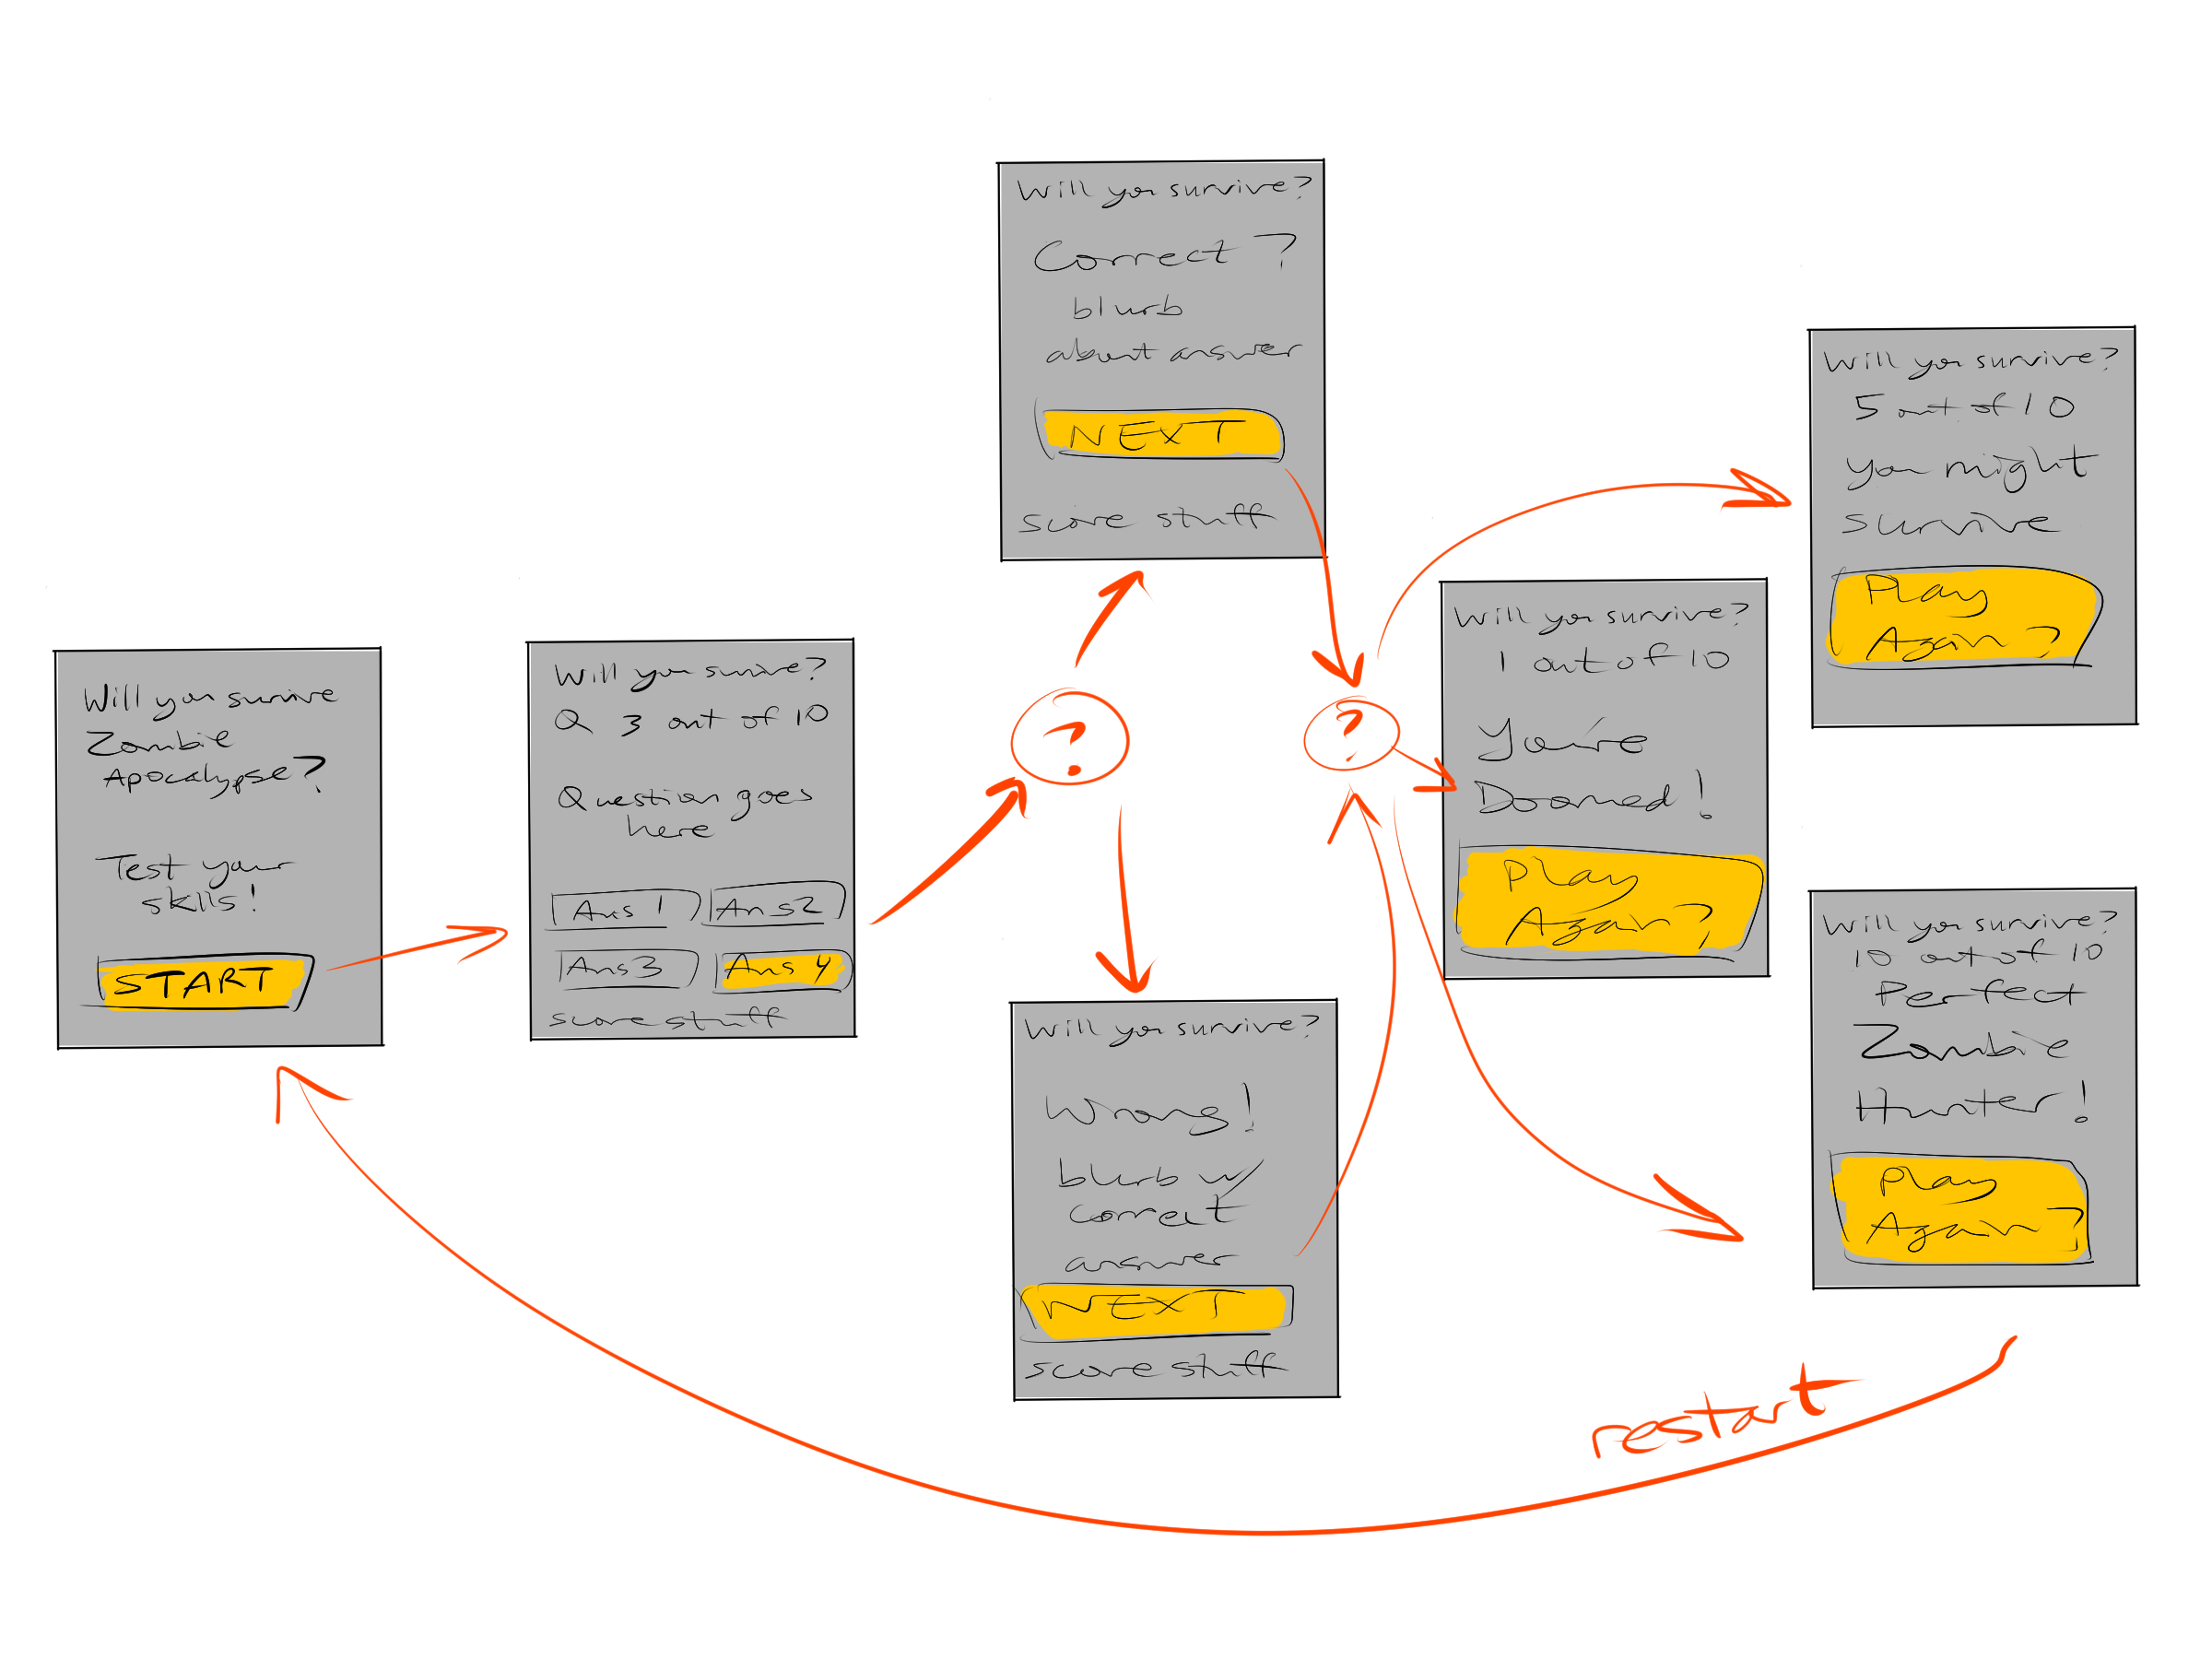 Will you survive
Zombie
Apocalypse?
Test your
sklls!
START
Will you survive?
Q 3 out of 10
Question goes
here
Ans 1
Ans2
Ans3
Ans 4
score stuff
Will you survive?
Correct?
blurb
about answer
NEXT
score stuff
?
Will you survive?
Wrong!
blurb w/
correct
answer
NEXT
score stuff
?
Will you survive?
1 out of 10
You're
Doomed!
Play
Again?
Will you survive?
5 out of 10
you might
survive
Play
Again?
Will you survive?
10 out of 10
Perfect
Zombie
Hunter!
Play
Again?
restart